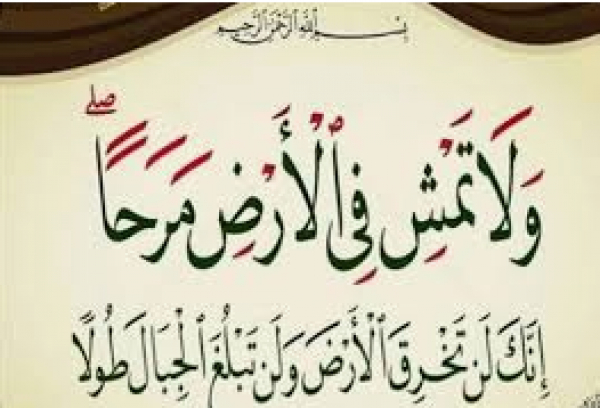 بسم الله الرحمن الرحيم
وَلَا تَمْشِ فِي ٱلْأَرْضِ مَرَحًا ۖ
إِنَّكَ لَن تَخْرِقَ ٱلْأَرْضَ وَلَن تَبْلُغَ ٱلْجِبَالَ طُولًا